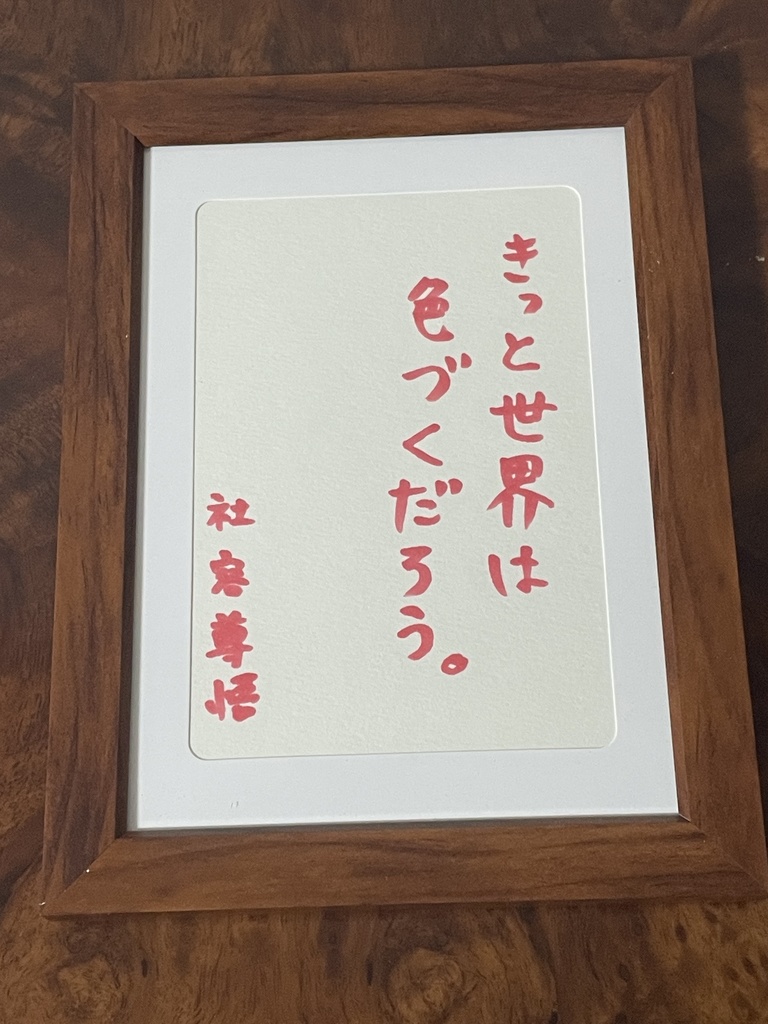 きっと世界は
色づくだろう。
社容尊悟